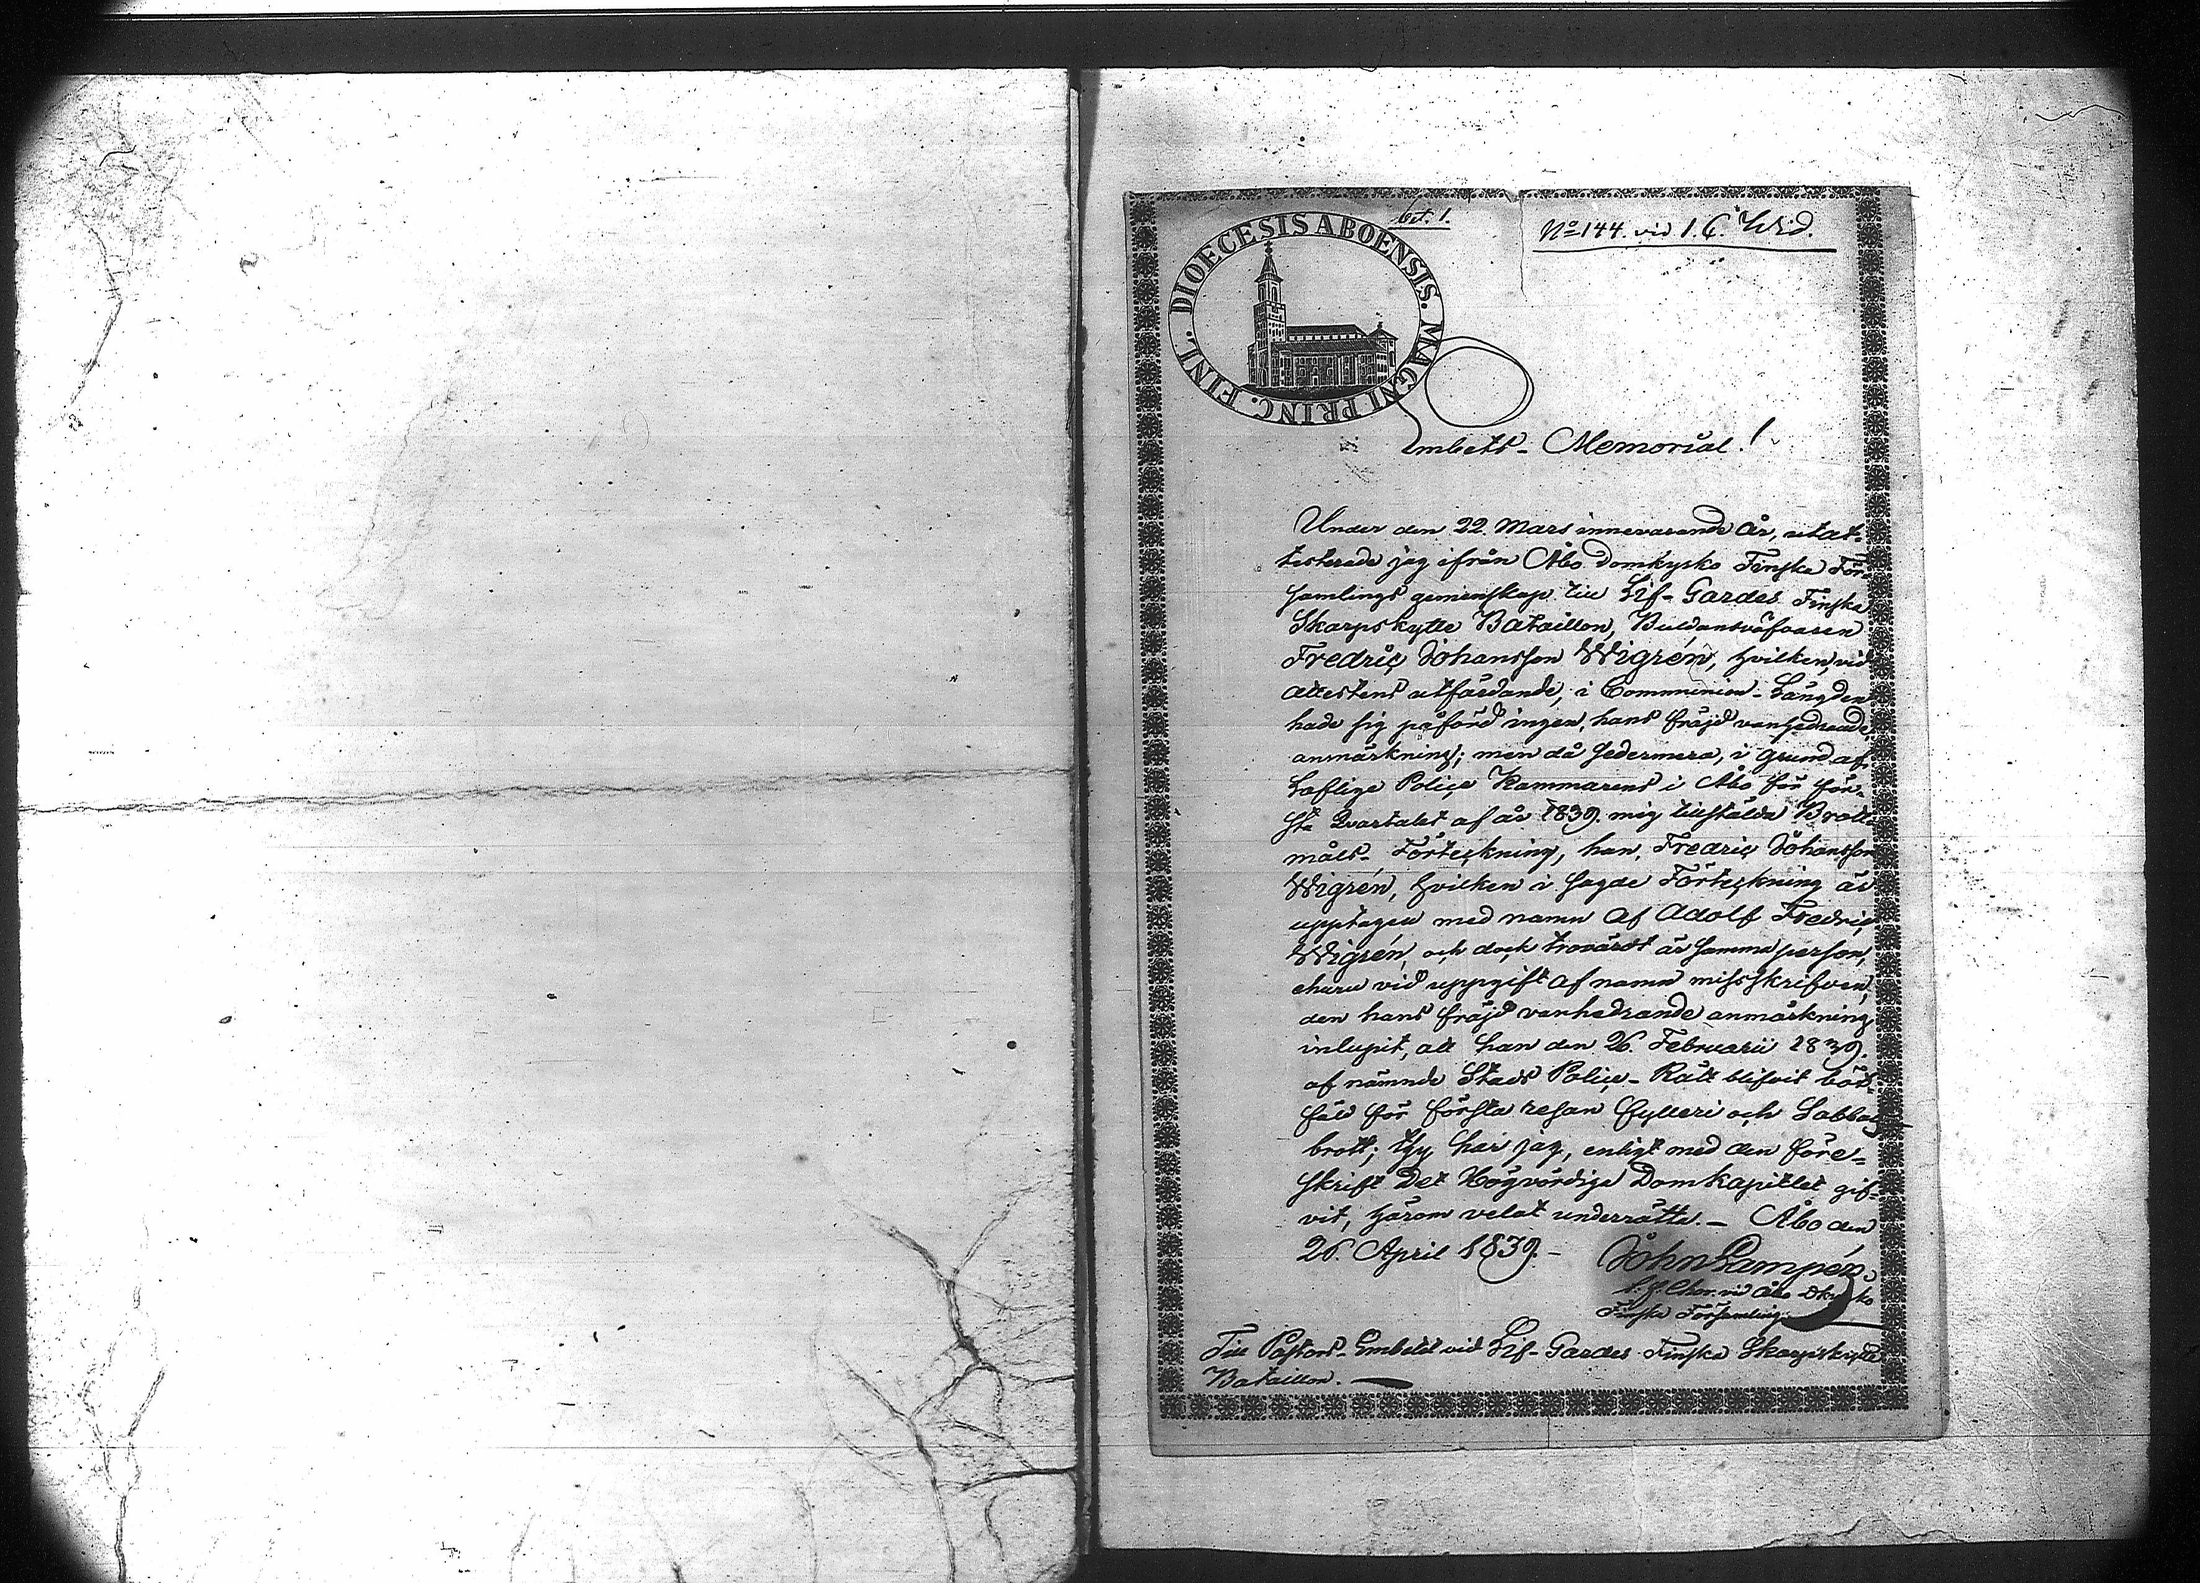 bet. 1.
No 144. vid 1. C. Wid.
DIOECESIS ABOENSIS. MAGNI PRINC. FINL.
Embets-Memorial!
Under den 22. Mars innevarande år, utat-
testerade jag ifrån Åbo Domkyrko Finska För-
samlings gemenskap till Lif-Gardes Finska
Skarpskytte Bataillon,
Fredric Johansson Wigrén, hvilken, vid
attestens utfärdande, i Communion-Längden
hade sig påförd ingen, hans fräjd vanhedrande
anmärkning; men då sedermera, i grund af
Loflige Police Kammarens i Åbo för för-
sta Qvartalet af år 1839. mig tillstälda Brott-
måls-Förteckning, han, Fredric Johansson
Wigrén, hvilken i sagde Förteckning är
upptagen med namn af Adolf Fredric
Wigrén, och dock troværdt är samma person,
ehuru vid uppgift af namn missskrifven,
den hans fräjd vanhedrande anmärkning
inlupit, att han den 26. Februarii 1839.
af nämnde Stads Police-Rätt blifvit böt-
fäld för första resan fylleri och Sabbats
brott; thy har jag, enligt med den före-
skrift Det Högvördiga Domkapitlet gif-
vit, härom velat underrätta. - Åbo den
26. April 1839. -
John Lampén.
Chor. vid Åbo Dkyrko
Finska Församling.
Till Pastors-Embetet vid Lif-Gardes Finska Skarpskytte
Bataillon.